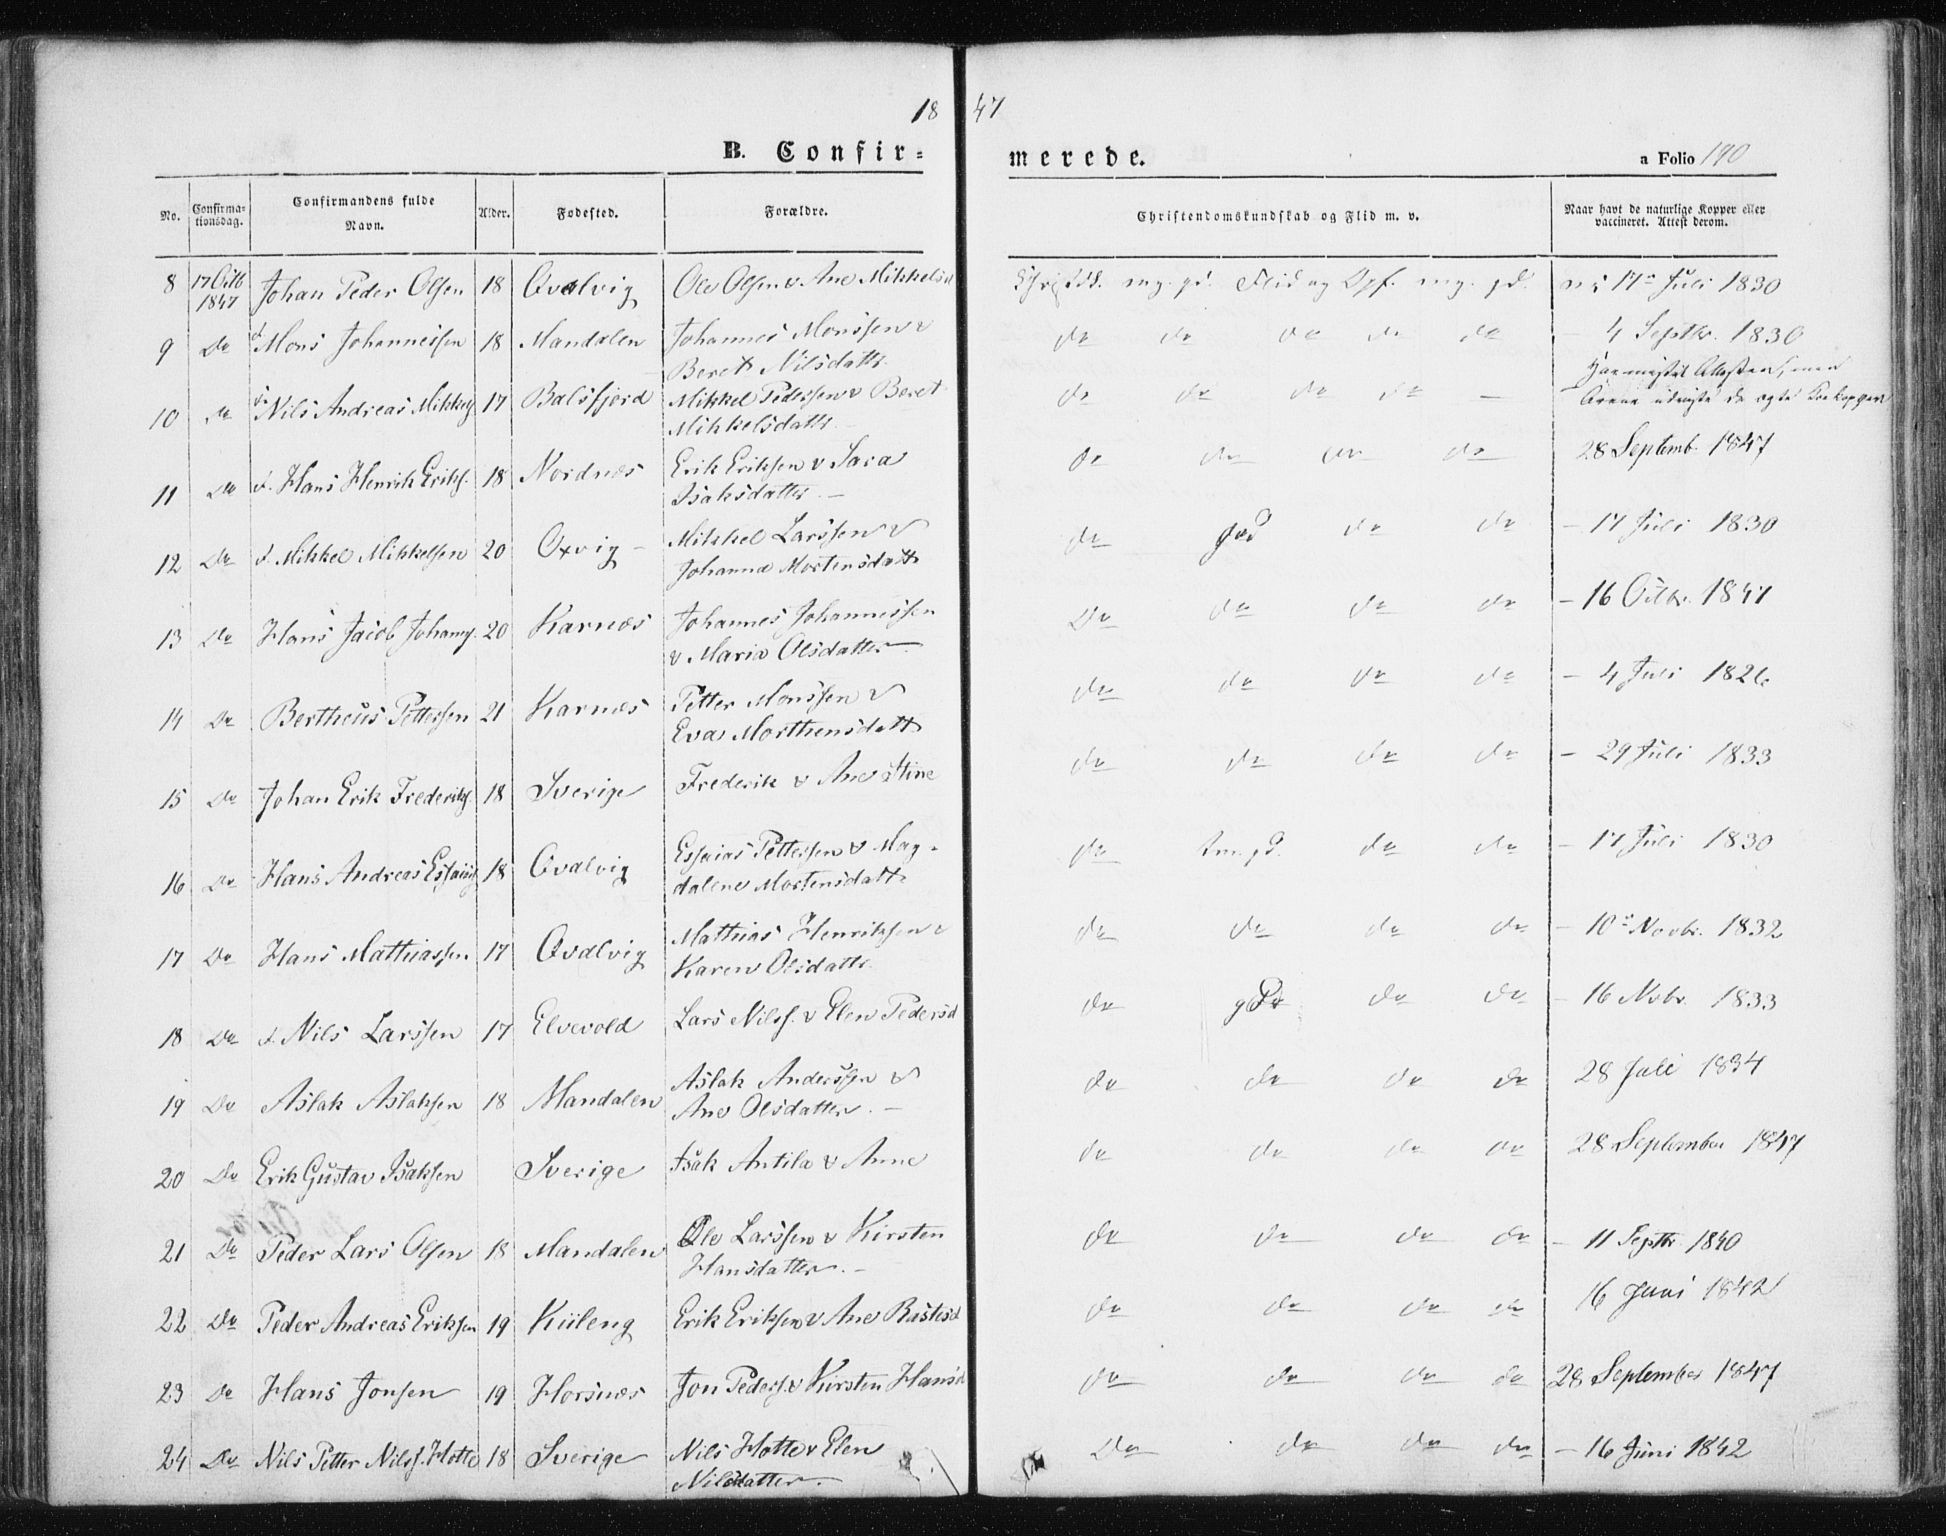 18 47
B. Confir= merede. a Folio 190
No. Confirma=tionsdag. Confirmandens fulde Navn. Alder. Fødested. Forældre. Christendomskundskab og Flid m. v. Naar havt de naturlige Kopper eller vaccineret. Attest derom.
8 17 Octb 1847 Johan Peder Olsen 18 Qvalvig Ole Olsen & Ane Mikkelsd mg. gd. Flid og Opf. mg. gd. 17 Juli 1830
9 Do Mons Johannessen 18 Mandalen Johannes Monssen & do do do do do - 4 Septbr. 1830
Beret Nilsdattr.
10 do Nils Andreas Mikkels 17 Balsfjord Mikkel Pedersen & Beret do do do do —
Mikkelsdattr
11 Do Hans Henrik Eriks. 18 Nordnæs Erik Eriksen & Sara do do do do 28 Septemb. 1847
Isaksdatter. —
12 Do Mikkel Mikkelsen 20 Oxvig - Mikkel Larssen & do god do do - 17 Juli 1830
Johanna Mortensdatt
13 Do Hans Jacob Johanns. 20 Karnæs Johannes Johannessen Do do do do - 16 Octbr. 1847
& Maria Olsdatter
14 Do Bertheus Pettersen 21 Karnæs Petter Monssen & do do do do - 4 Juli 1826
Eva Morthensdatt
15 Do Johan Erik Frederiks. 18 Sverige Frederik & Ane Stine do do do do - 29 Juli 1833
16 Do Hans Andreas Essaias 18 Qvalvig Essaias Pettersen & Mag- do gd. do do - 17 Juli 1830
dalene Mortensdatt
17 Do Hans Mathiassen 17 Qvalvig Mathias Henriksen & do do do do - 10 Novbr. 1832
Karen Olsdattr.
18 Do Nils Larssen 17 Elvevold Lars Nilss. & Elen Pedersd do do do - 16 Nvbr. 1833
19 Do Aslak Aslaksen 18 Mandalen Aslak Anderssen & do do do do 28 Juli 1834
Ane Olsdatter. —
20 Do Erik Gustav Isaksen Sverige Isak Antila & Anne do do do do 28 September 1847
21 Do Peder Lars Olsen 18 Mandalen Ole Larssen & Kirsten do do do do - 11 Septbr 1840
Hansdatter. —
22 Do Peder Andreas Eriksen 19 Kiileng Erik Eriksen & Ane Rastesd do do do do 16 Juni 1842
23 Do Hans Jonsen 19 Horsnæs Jon Peders. & Kirsten Hansd do do do do 28 September 1847
24 Do Nils Petter Nilss. Hotte 18 Sverige Nils Hotte & Elen Do do do do - 16 Juni 1842
Nilsdatter.